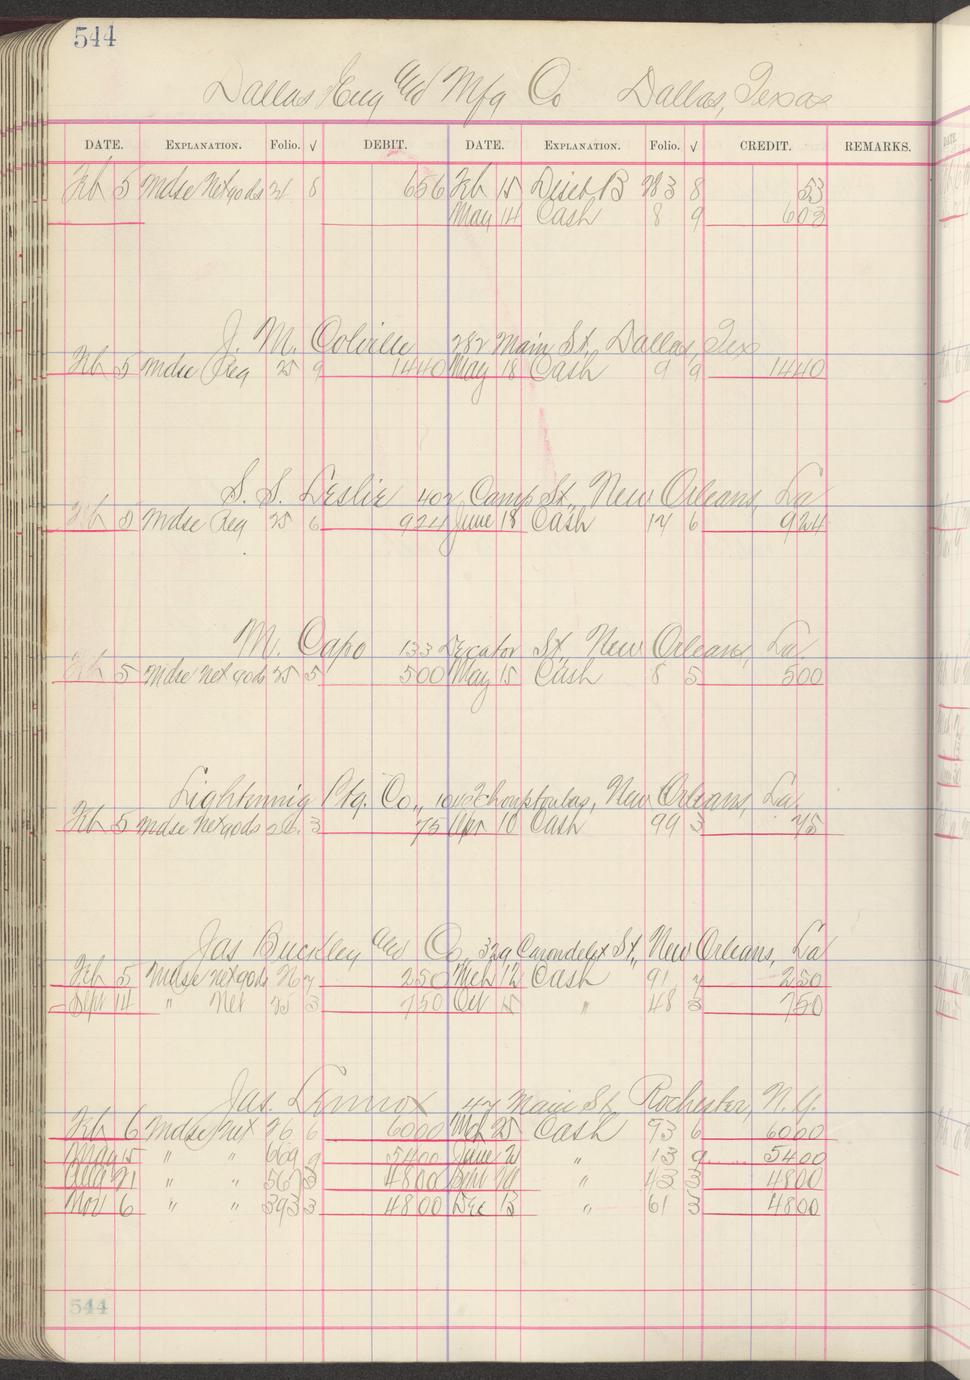 544
Dallas Eng and Mfg Co Dallas, Texas
DATE. EXPLANATION. Folio. √ DEBIT. DATE. EXPLANATION. Folio. √ CREDIT. REMARKS.
Feb 5 Mdse Net gods 8 656 Feb 15 Disct B 3 8 53
May 14 Cash 8 9 603
J. M. Colville 282 Main St, Dallas, Tex
Feb 5 Mdse Reg 25 9 1440 May 18 Cash 9 9 1440
S. S. Leslie 402 Camp St, New Orleans, La
Feb 5 Mdse Reg 25 6 924 June 18 Cash 17 6 924
M. Capo 133 Decator St, New Orleans, La
Feb 5 Mdse Net gods 25 5 500 May 15 Cash 8 5 500
Lightning Ptg. Co., New Orleans, La.
Feb 5 Mdse Net gods 26 3 75 Apr 10 Cash 99 3 75
Jas Buckley and Co, 329 Carondelet St, New Orleans, La
Feb 5 Mdse net gods 7 250 Mch 12 Cash 91 7 250
Sept 14 " Net 25 3 750 Oct 15 " 48 3 750
Jas. Lennox 47 Main St, Rochester, N.Y.
Feb 6 Mdse Net 26 6 6000 Mch 25 Cash 93 6 6000
May 15 " " 669 9 5400 June 21 " 13 9 5400
Aug 21 " " 567 3 4800 Sept " 43 3 4800
Nov 6 " " 393 3 4800 Dec 13 " 61 3 4800
544